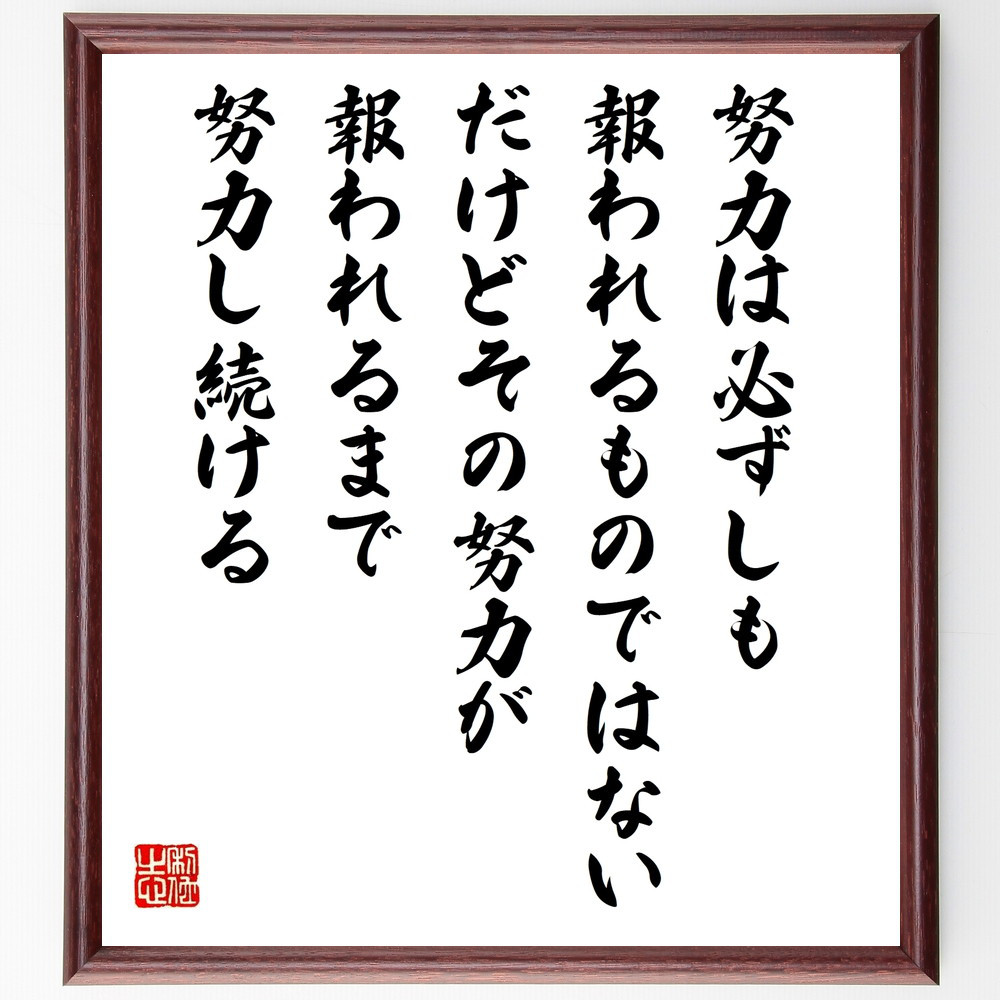 努力は必ずしも
報われるものではない
だけどその努力が
報われるまで
努力し続ける